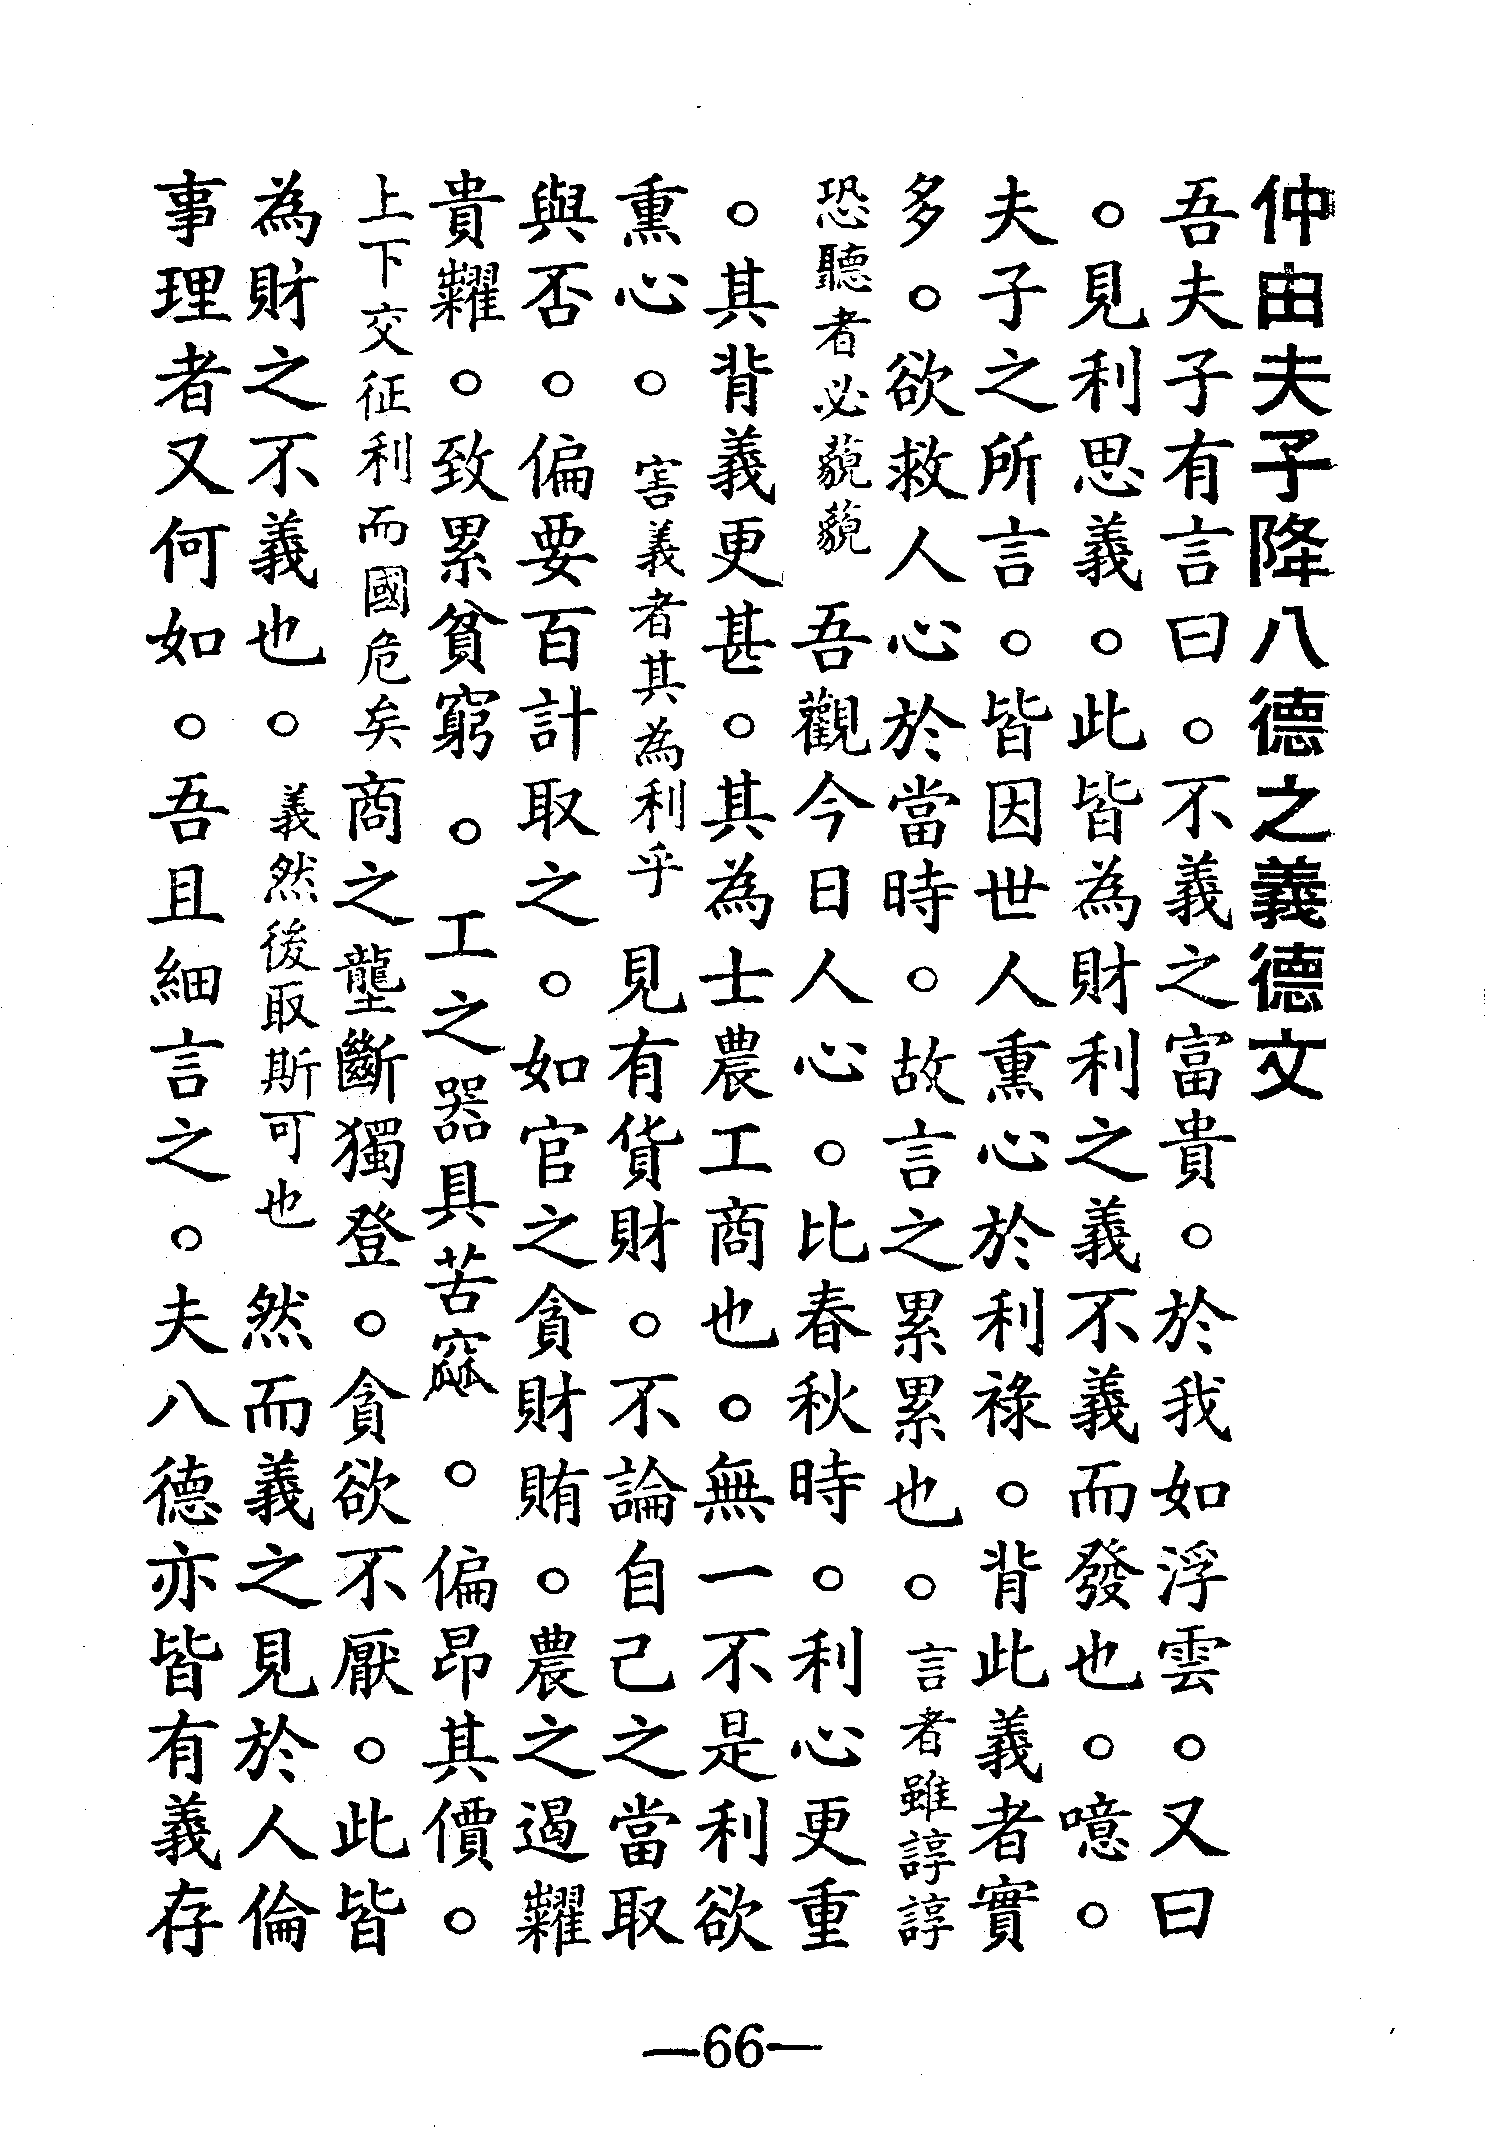 仲由夫子降八德之義德文
吾夫子有言曰。不義之富貴。於我如浮雲。又曰
。見利思義。此皆為財利之義不義而發也。噫。
夫子之所言。皆因世人熏心於利祿。背此義者實
多。欲救人心於當時。故言之累累也。言者雖諄諄
恐聽者必藐藐 吾觀今日人心。比春秋時。利心更重
。其背義更甚。其為士農工商也。無一不是利欲
熏心。害義者其為利乎 見有貨財。不論自己之當取
與否。偏要百計取之。如官之貪財賄。農之遏糶
貴糶。致累貧窮。工之器具苦窳。偏昂其價。
上下交征利而國危矣 商之壟斷獨登。貪欲不厭。此皆
為財之不義也。義然後取斯可也 然而義之見於人倫
事理者又何如。吾且細言之。夫八德亦皆有義存
—66—